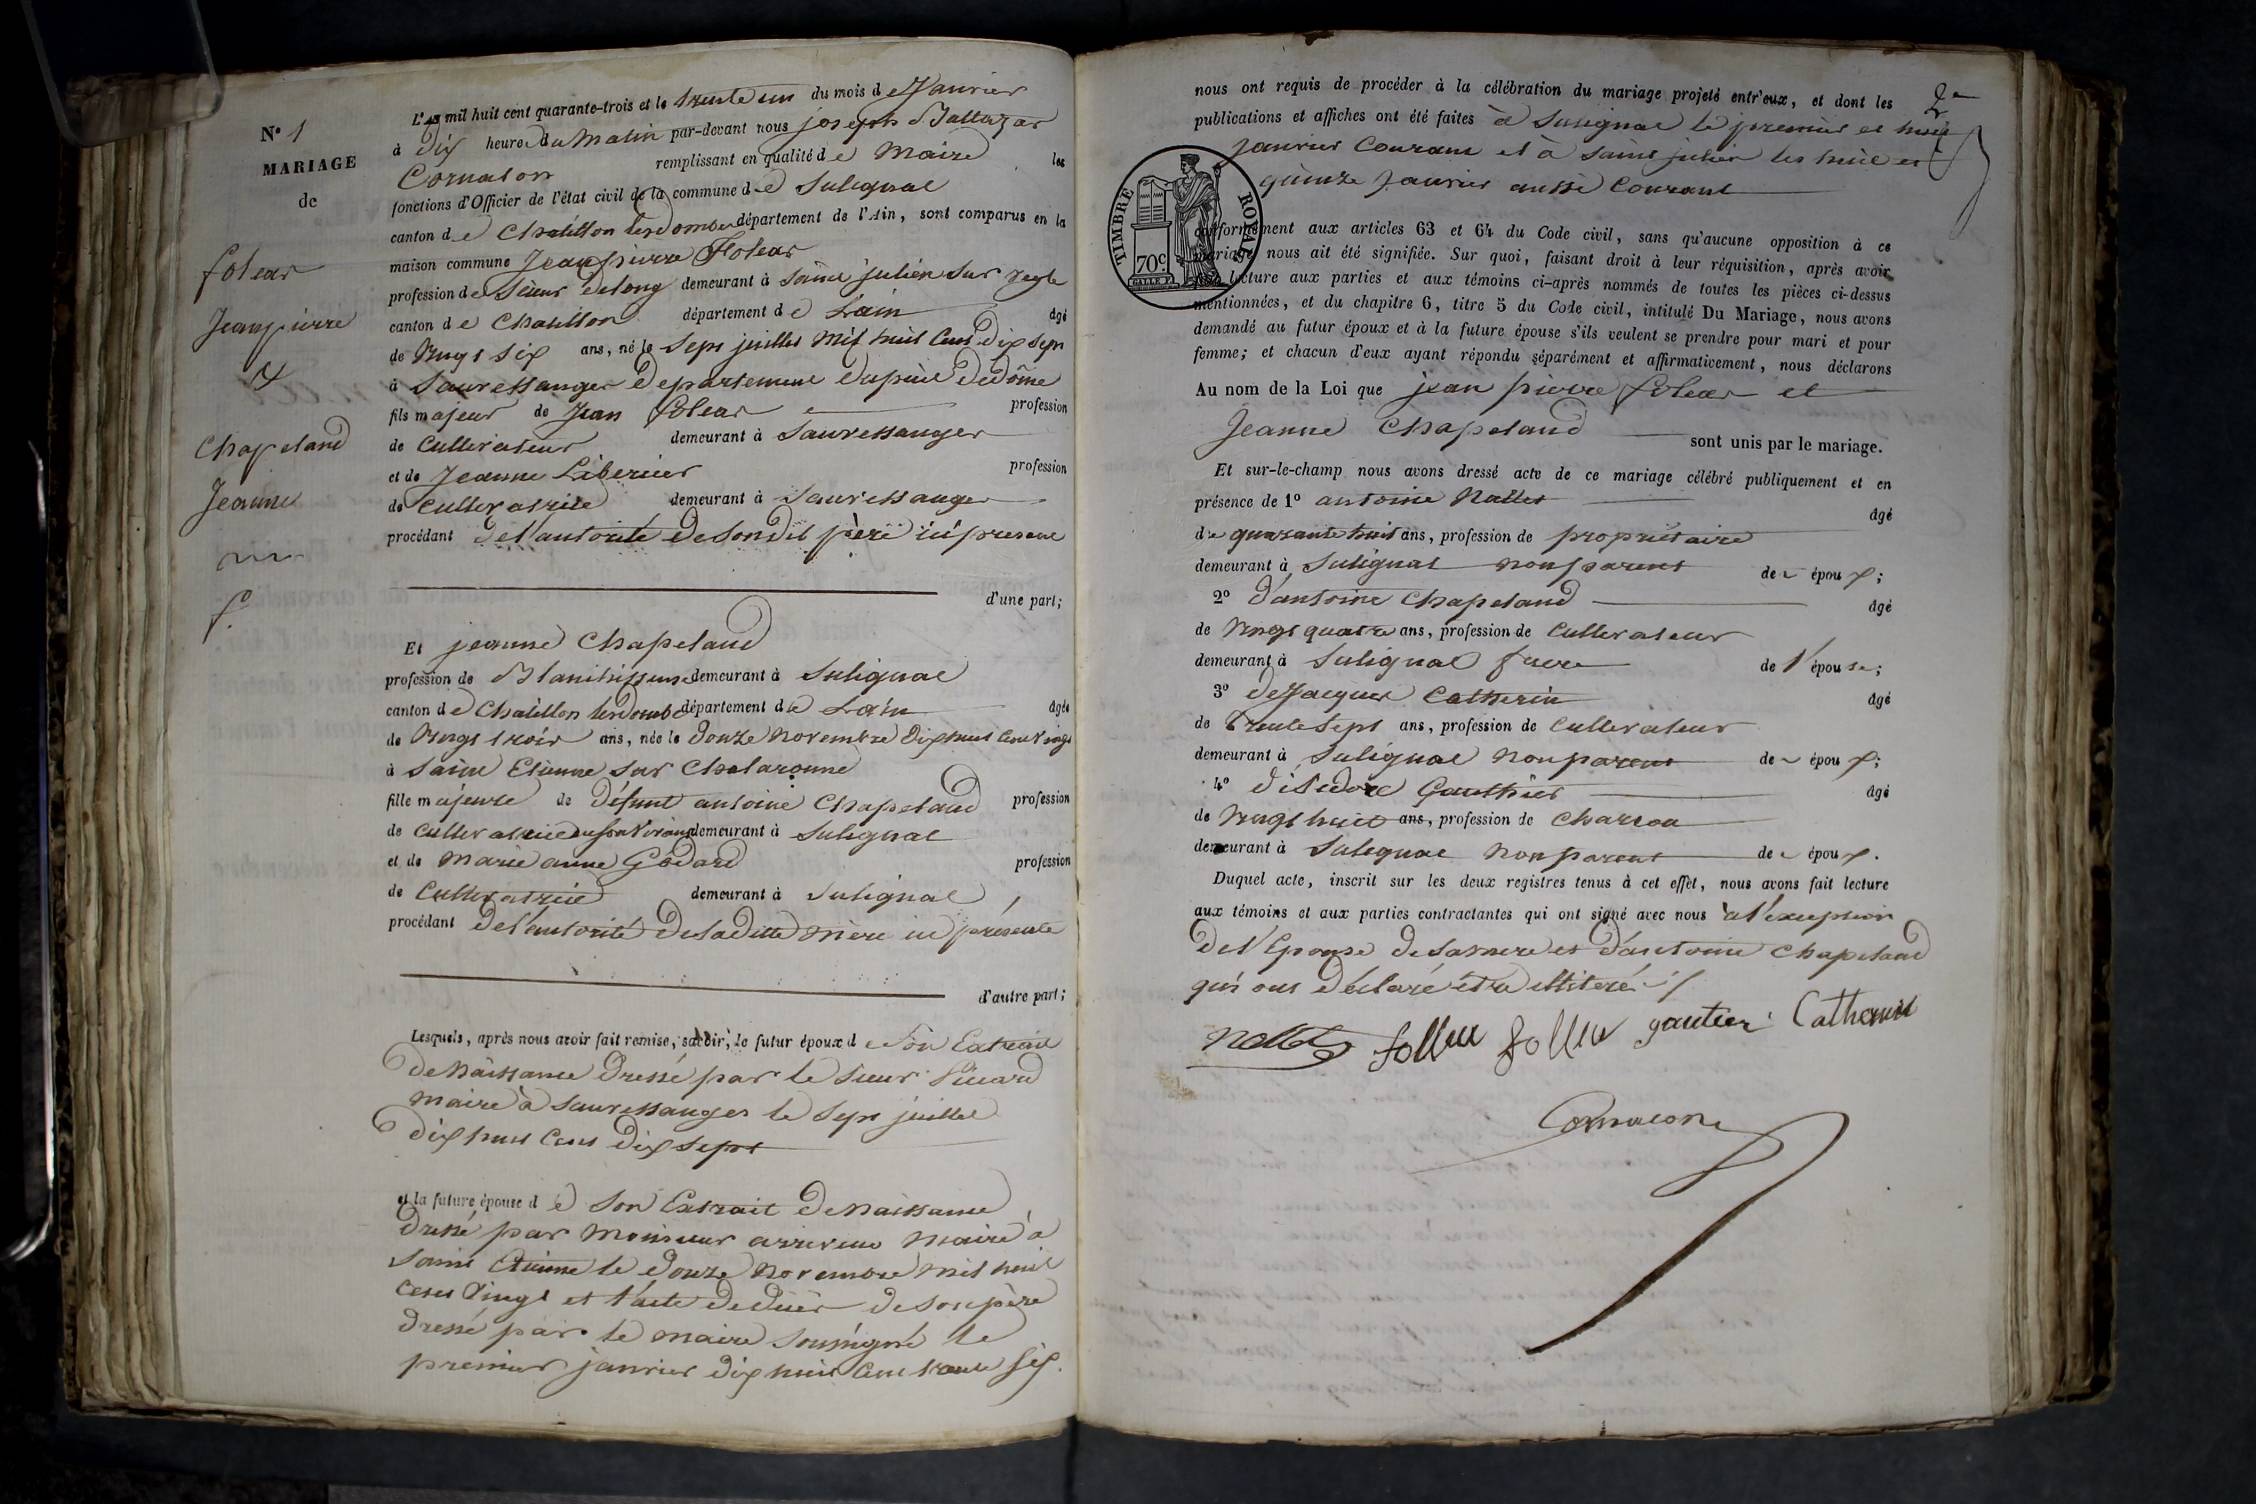 N° 1
MARIAGE
de
foleas
Jeanpierre
&
Chapeland
Jeanne
f.
L'an mil huit cent quarante-trois et le trente un du mois de Janvier
à dix heure du Matin par-devant nous joseph Baltazar
Cornaton remplissant en qualité de Maire les
fonctions d'Officier de l'état civil de la commune de Sulignat
canton de Chatillon les dombe département de l'Ain, sont comparus en la
maison commune Jeanpierre Foleas
profession de Sieur delong demeurant à Saint julien sur Vesle
canton de Chatillon département de Lain âgé
de Vingt Six ans, né le Sept juillet Mil huit Cent dix Sept
à Sauvessanges Departement dupuit Dedôme
fils majeur de Jean foleas profession
de Cultivateur demeurant à Sauvessanges
et de Jeanne Libercier profession
de Cultivatrice demeurant à Sauvessanges
procédant de l'autorité de Son dit père ici present
d'une part;
Et jeanne Chapeland
profession de Blanchisseuse demeurant à Sulignat
canton de Chatillon les dombe département de Lain âgée
de Vingt trois ans, née le Douze Novembre Dix huit Cent Vingt
à Saint Etienne Sur Chalaronne
fille majeure de Défunt antoine Chapeland profession
de Cultivatrice demeurant à Sulignat
et de Marie anne Godard profession
de Cultivatrice demeurant à Sulignat
procédant de l'autorité de Sa ditte Mère ici présente
d'autre part;
Lesquels, après nous avoir fait remise, savoir, le futur époux de Son Extrait
de Naissance Dressé par le Sieur
maire à Sauvessanges le Sept juillet
dix huit Cent dix Sept
et la future épouse de Son Extrait de Naissance
Dressé par Monsieur Maire à
Saint Etienne le Douze Novembre Mil huit
Cent Vingt et l'acte de décès de Son père
Dressé par le Maire Soussigné le
premier janvier dix huit Cent trente Six.
2e
nous ont requis de procéder à la célébration du mariage projeté entr'eux, et dont les
publications et affiches ont été faites à Sulignat le premier et huit
Janvier Courant et à Saint julien les huit et
quinze Janvier aussi Courant
TIMBRE ROYAL
70c.
conformément aux articles 63 et 64 du Code civil, sans qu'aucune opposition à ce
mariage nous ait été signifiée. Sur quoi, faisant droit à leur réquisition, après avoir
fait lecture aux parties et aux témoins ci-après nommés de toutes les pièces ci-dessus
mentionnées, et du chapitre 6, titre 5 du Code civil, intitulé Du Mariage, nous avons
demandé au futur époux et à la future épouse s'ils veulent se prendre pour mari et pour
femme; et chacun d'eux ayant répondu séparément et affirmativement, nous déclarons
Au nom de la Loi que jean pierre foleas et
Jeanne Chapeland sont unis par le mariage.
Et sur-le-champ nous avons dressé acte de ce mariage célébré publiquement et en
présence de 1° antoine Nallet
âgé
de quarante huit ans, profession de propriétaire
demeurant à Sulignat non parent de époux;
2° d'antoine Chapeland âgé
de Vingt quatre ans, profession de Cultivateur
demeurant à Sulignat frere de l'épouse;
3° de Jacques Catherin âgé
de trente Sept ans, profession de Cultivateur
demeurant à Sulignat non parent de époux;
4° d'isidore Gauthier âgé
de Vingt huit ans, profession de Charron
demeurant à Sulignat non parent de époux.
Duquel acte, inscrit sur les deux registres tenus à cet effet, nous avons fait lecture
aux témoins et aux parties contractantes qui ont signé avec nous à l'exception
de l'Epouse de Sa mere et d'antoine Chapeland
qui ont déclaré être illiteré
Nallet folleas folleas gautier Catherin
Cornaton